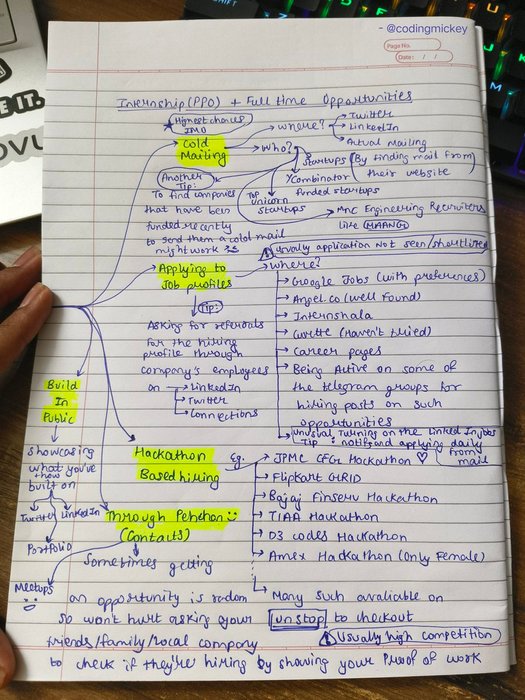 - @codingmickey
Page No.
Date: / /
SHIFT
E IT.
OVU
Internship (PPO) + Full time Opportunities
Highest chances
IMO
Cold
Mailing
where?
Twitter
LinkedIn
Actual Mailing
Who?
Startups (By finding mail from
their website)
YCombinator
funded startups
Top
unicorn
startups
MNC Engineering Recruiters
like (MAANG)
Another
Tip:
To find companies
that have been
funded recently
to send them a cold mail
might work
Usually application not seen/shortlisted
Applying to
Job profiles
where?
Google Jobs (with preferences)
Angel.co (well found)
Internshala
Cuvette (Haven't tried)
Career pages
Being Active on some of
the telegram groups for
hiring posts on such
opportunities
Unusual Turning on the LinkedIn jobs
Tip : notifs and applying daily
from
mail
Tip:
Asking for referrals
for the hiring
profile through
company's employees
on
LinkedIn
Twitter
Connections
Build
In
Public
showcasing
what you've
+ how
built on
Twitter
LinkedIn
Portfolio
Meetups
Hackathon
Based hiring
Eg.
JPMC CFG Hackathon
Flipkart GRID
Bajaj Finserv Hackathon
TIAA Hackathon
D3 codes Hackathon
Amex Hackathon (Only Female)
Many such avaliable on
unstop to checkout
Usually high competition
Through Pehchan
(Contacts)
Sometimes getting
an opportunity is radom
so won't hurt asking your
friends/family/local company
to check if they're hiring by showing your Proof of work